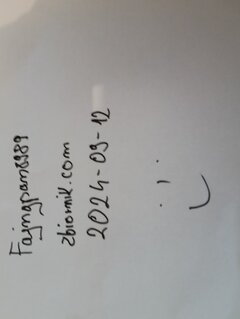 Fajnypan8989
zbiornik.com
2024-09-12